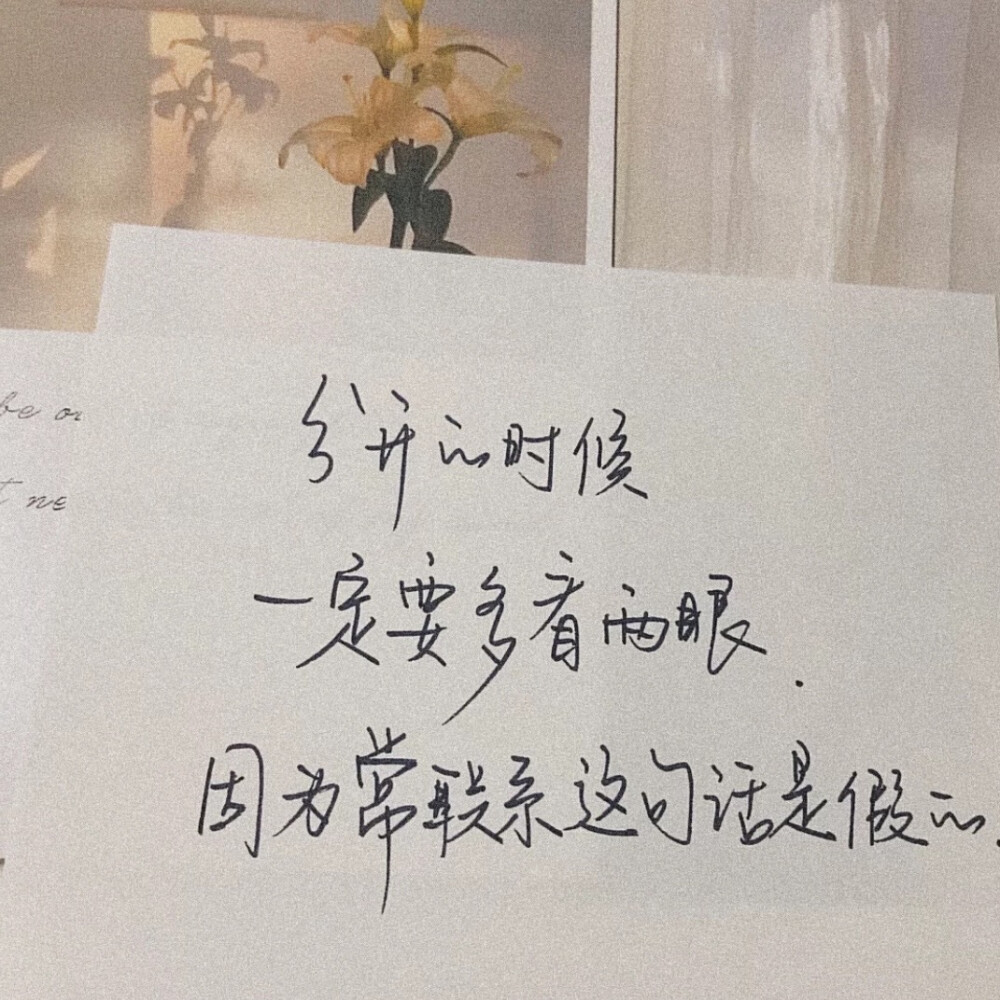 be or
t ne
分开的时候
一定要多看两眼.
因为常联系这句话是假的.